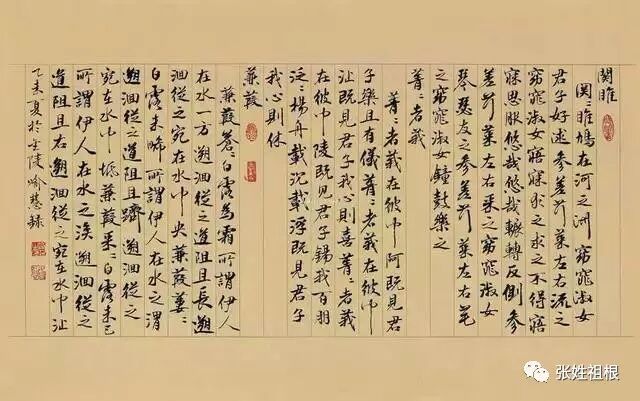 関雎
関〻雎鳩在河之洲窈窕淑女
君子好逑参差荇菜左右流之
窈窕淑女寤寐求之求之不得寤
寐思服悠哉悠哉輾轉反側参
差荇菜左右采之窈窕淑女
琴瑟友之参差荇菜左右芼
之窈窕淑女鐘鼓樂之
菁〻者莪
菁〻者莪在彼中阿既見君
子樂且有儀菁〻者莪在彼中
沚既見君子我心則喜菁〻者莪
在彼中陵既見君子錫我百朋
泛〻楊舟載沉載浮既見君子
我心則休
蒹葭
蒹葭蒼〻白露為霜所謂伊人
在水一方遡洄從之道阻且長遡
洄從之宛在水中央蒹葭萋〻
白露未晞所謂伊人在水之湄
遡洄從之道阻且躋遡洄從之
宛在水中坻蒹葭采〻白露未已
所謂伊人在水之涘遡洄從之
道阻且右遡洄從之宛在水中沚
夏於金陵喻慧録
张姓祖根